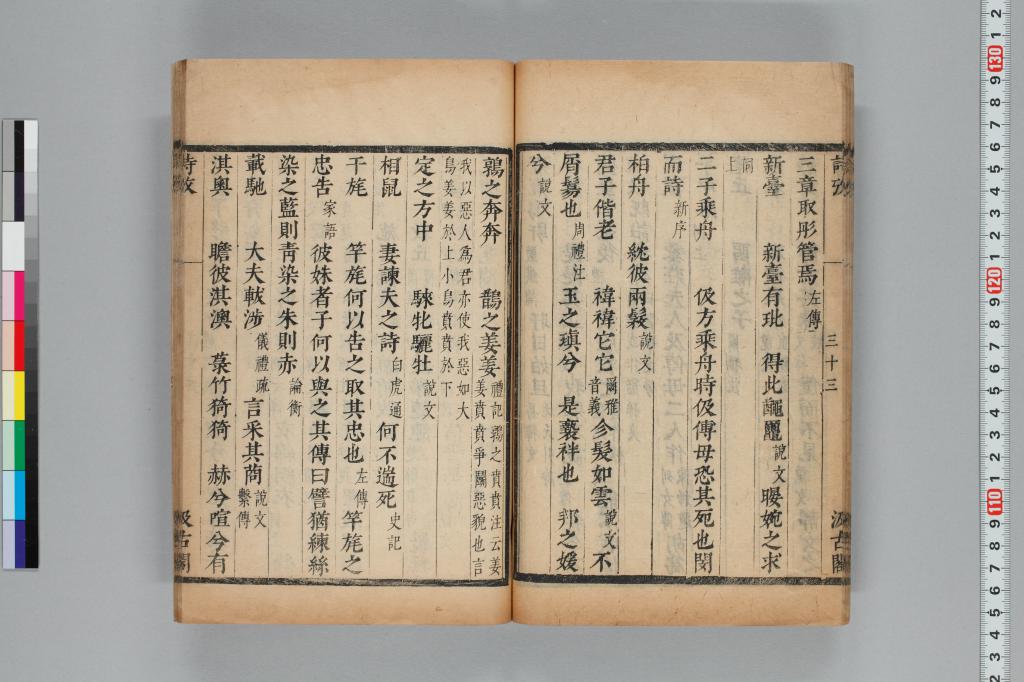 詩攷 三十三 汲古閣
三章取彤管焉 左傳
新臺 新臺有玼 得此䵶䵳 說文 㬫婉之求
同上
二子乘舟 伋方乘舟時伋傅母恐其死也閔
而詩 新序
柏舟 紞彼兩髮 說文
君子偕老 褘褘它它 爾雅音義 㐱髮如雲 說文 不
屑鬄也 周禮注 玉之瑱兮 是褻袢也 邦之媛
兮 說文
鶉之奔奔 鵲之姜姜 禮記鶉之賁賁注云姜姜賁賁爭鬬惡貌也言
我以惡人為君亦使我惡如大鳥姜姜於上小鳥賁賁於下
定之方中 騋牝驪牡 說文
相鼠 妻諫夫之詩 白虎通 何不遄死 史記
干旄 竿旄何以告之取其忠也 左傳 竿旄之
忠告 家語 彼姝者子何以與之其傳曰譬猶練絲
染之藍則青染之朱則赤 論衡
載馳 大夫軷涉 儀禮疏 言采其莔 說文繫傳
淇奧 瞻彼淇澳 菉竹猗猗 赫兮喧兮有
詩攷 汲古閣